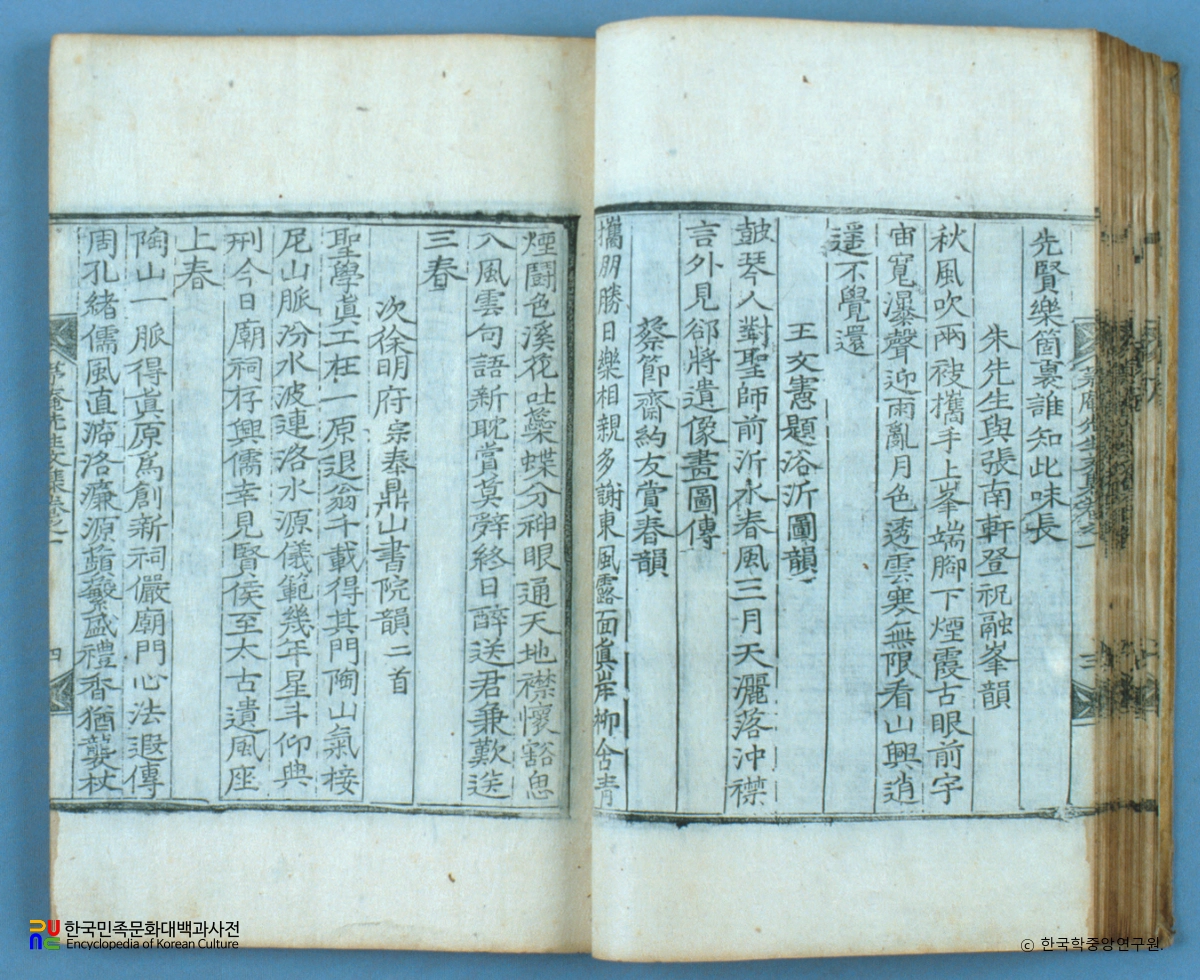 先賢樂箇裏誰知此味長
朱先生與張南軒登祝融峯韻
秋風吹兩袂攜手上峯端腳下煙霞古眼前宇
宙寬瀑聲迎雨亂月色透雲寒無限看山興逍
遙不覺還
王文憲題浴沂圖韻
鼓琴人對聖師前沂水春風三月天灑落沖襟
言外見郤將遺像畫圖傳
蔡節齋約友賞春韻
攜朋勝日樂相親多謝東風露面眞岸柳含靑
煙鬪色溪花吐蘂蝶分神眼通天地襟懷豁思
入風雲句語新耽賞莫辭終日醉送君兼歎送
三春
次徐明府宗奉鼎山書院韻二首
聖學眞工在一原退翁千載得其門陶山氣接
尼山脈汾水波連洛水源儀範幾年星斗仰典
刑今日廟祠存興儒幸見賢侯至太古遺風座
上春
陶山一脈得眞原爲創新祠儼廟門心法遐傳
周孔緖儒風直泝洛濂源蘋蘩盛禮香猶襲杖
四
한국민족문화대백과사전
Encyclopedia of Korean Culture
© 한국학중앙연구원